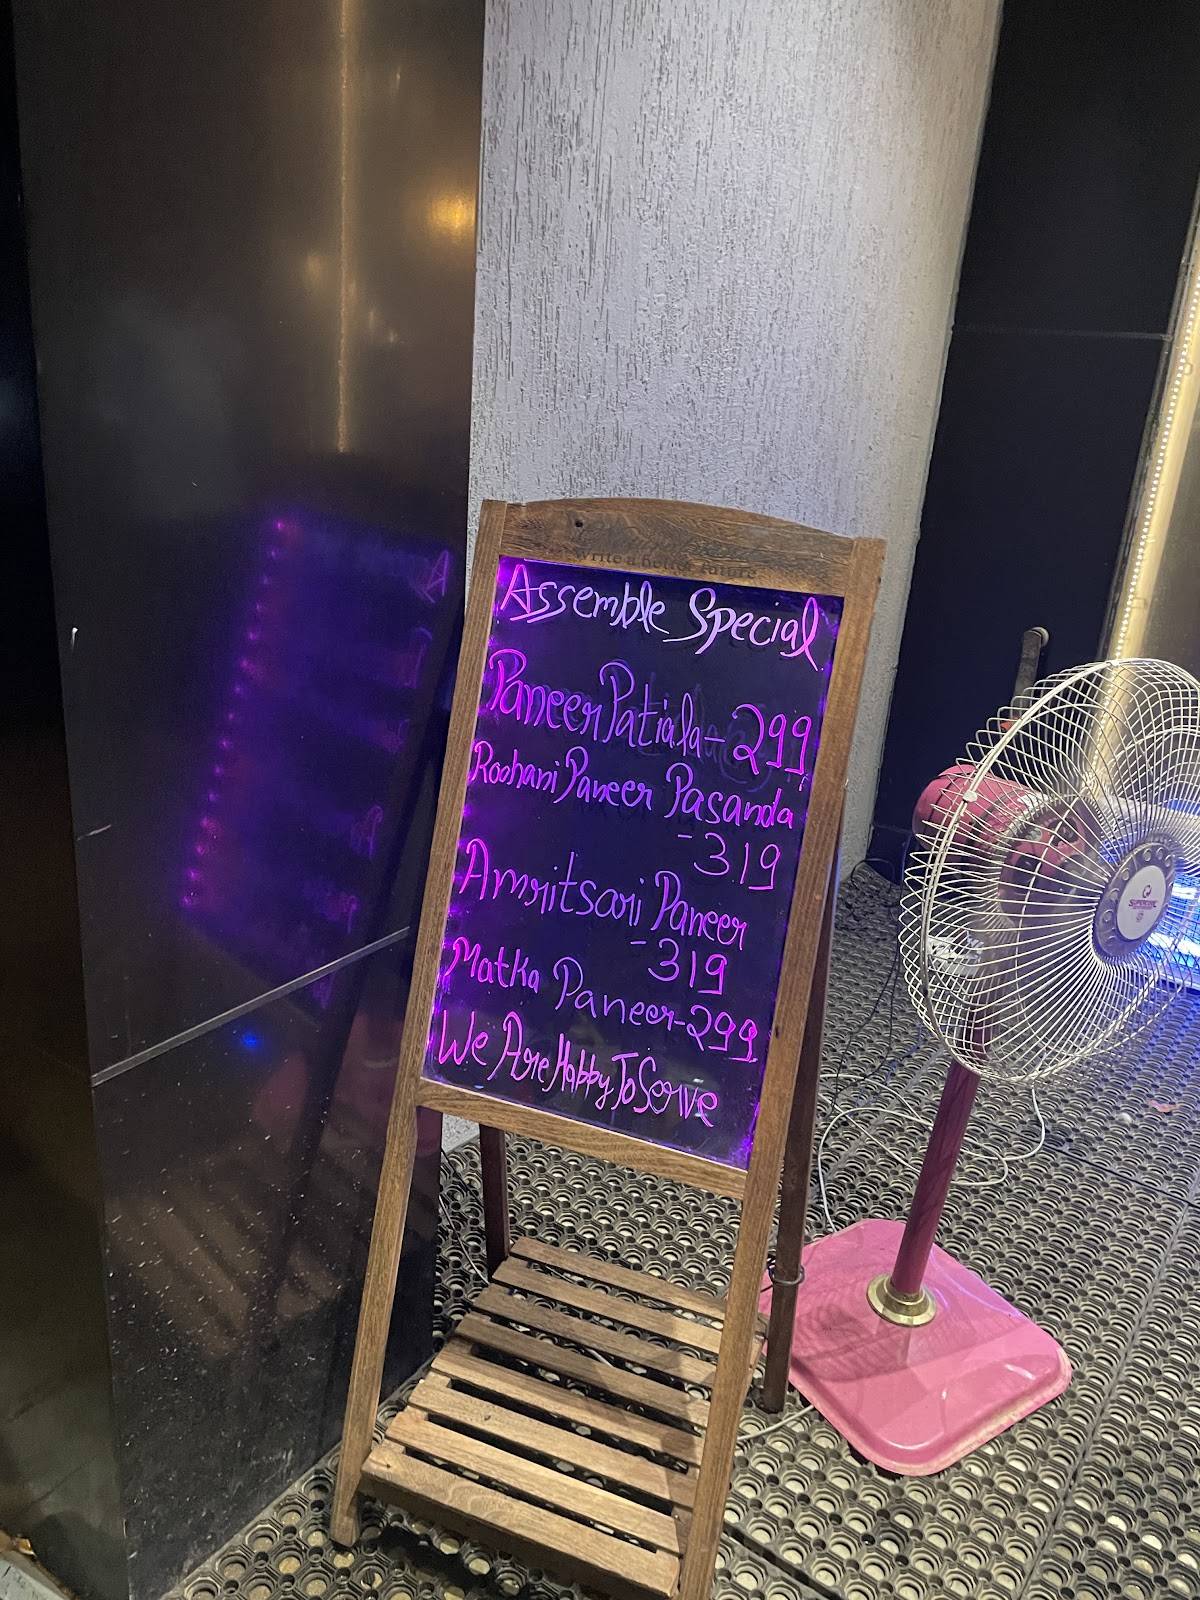 Write a better future
Assemble Special
Paneer Patiala - 299
Roshani Paneer Pasanda
- 319
Amritsari Paneer
- 319
Matka Paneer - 299
We Are Habby To Serve